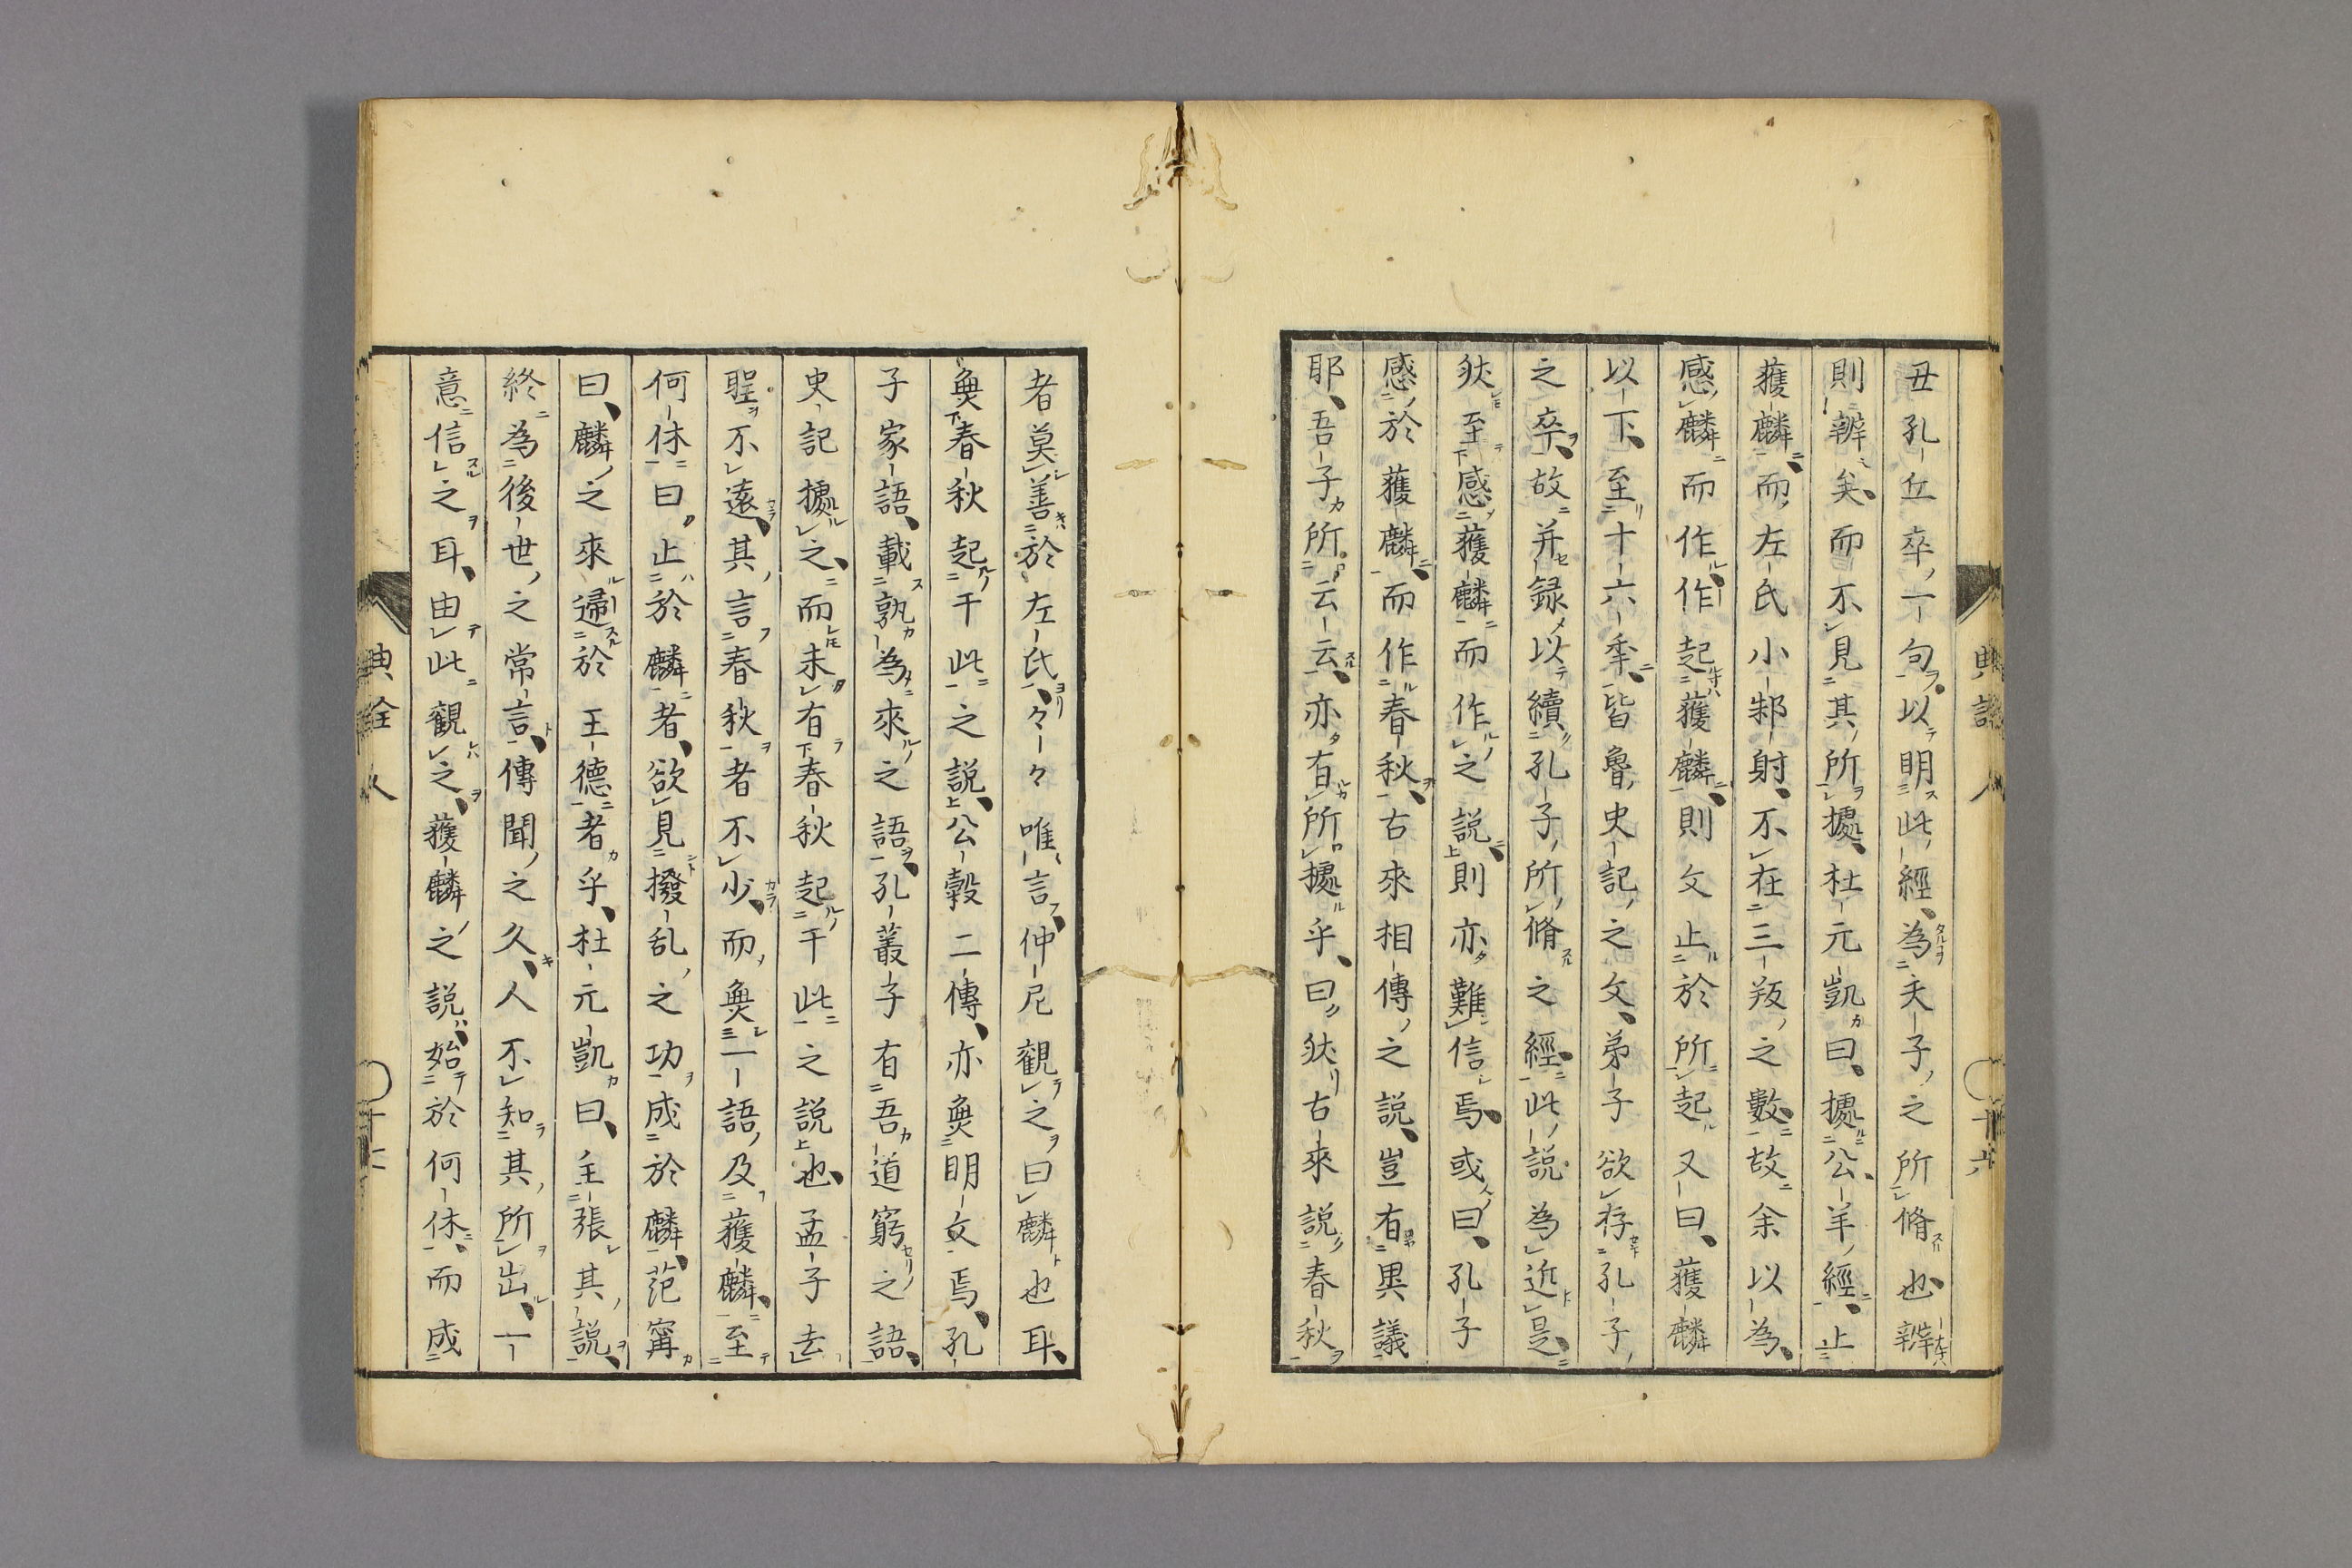 丑孔丘卒一句以明此經為夫子之所脩也辨
則辨矣而不見其所據杜元凱曰據公羊經止
獲麟而左氏小邾射不在三叛之數故余以為
感麟而作作起獲麟則文止於所起又曰獲麟
以下至十六年皆魯史記之文弟子欲存孔子
之卒故并録以續孔子所脩之經此説為近是
狀至感獲麟而作之説則亦難信焉或曰孔子
感於獲麟而作春秋古來相傳之説豈有異議
耶吾子所云云亦有所據乎曰狀古來説春秋
者莫善於左氏々々唯言仲尼觀之曰麟也耳
無春秋起于此之説公穀二傳亦無明文焉孔
子家語載孰為來之語孔叢子有吾道窮之語
史記據之而未有春秋起于此之説也孟子去
聖不遠其言春秋者不少而無一語及獲麟至
何休曰止於麟者欲見撥乱之功成於麟范甯
曰麟之來歸於王德者乎杜元凱曰主張其説
終為後世之常言傳聞之久人不知其所出一
意信之耳由此觀之獲麟之説始於何休而成
典詮 人 〇十六
典詮 人 〇十七